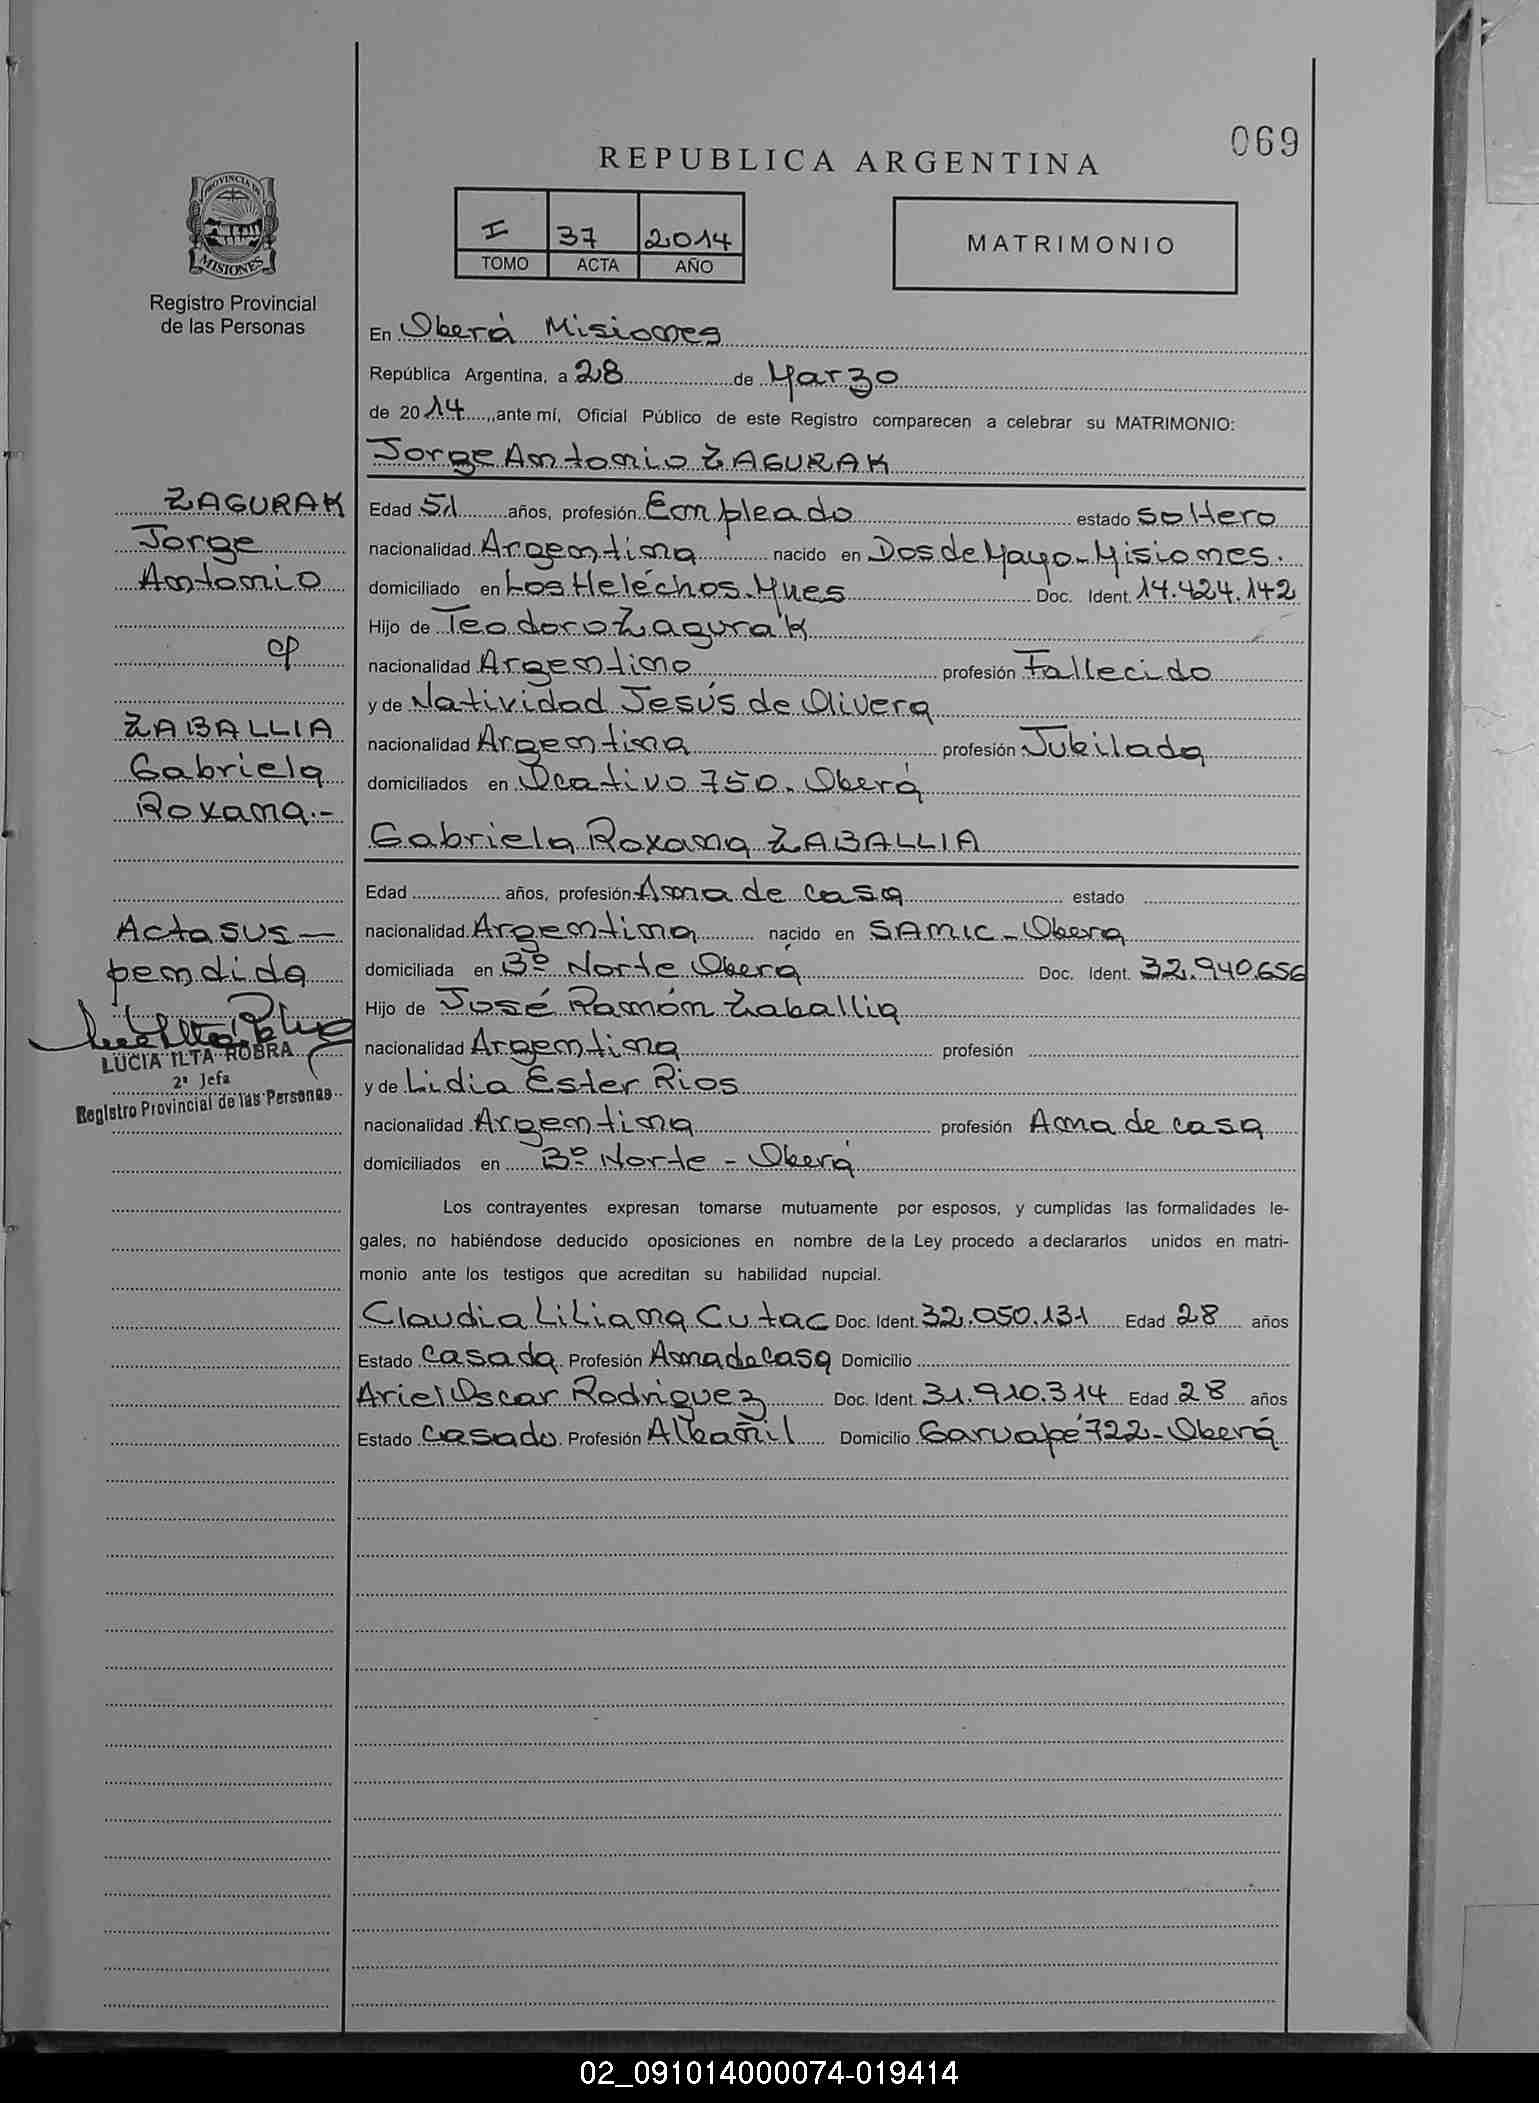 069
REPUBLICA ARGENTINA
PROVINCIA DE
MISIONES
Registro Provincial
de las Personas
I 37 2014
TOMO ACTA AÑO
MATRIMONIO
En Oberá Misiones
República Argentina, a 28 de Marzo
de 2014, ante mí, Oficial Público de este Registro comparecen a celebrar su MATRIMONIO:
Jorge Antonio ZAGURAK
Edad 51 años, profesión Empleado estado soltero
nacionalidad Argentina nacido en Dos de Mayo-Misiones.
domiciliado en Los Heléchos. Mnes Doc. Ident. 14.424.142
Hijo de Teodoro Zagurak
nacionalidad Argentino profesión Fallecido
y de Natividad Jesús de Olivera
nacionalidad Argentina profesión Jubilada
domiciliados en Ocativo 750. Oberá
Gabriela Roxana ZABALLIA
Edad años, profesión Ama de casa estado
nacionalidad Argentina nacido en SAMIC-Obera
domiciliada en Bº Norte Oberá Doc. Ident. 32.940.656
Hijo de José Ramón Zaballia
nacionalidad Argentina profesión
y de Lidia Ester Rios
nacionalidad Argentina profesión Ama de casa
domiciliados en Bº Norte - Oberá
Los contrayentes expresan tomarse mutuamente por esposos, y cumplidas las formalidades le-
gales, no habiéndose deducido oposiciones en nombre de la Ley procedo a declararlos unidos en matri-
monio ante los testigos que acreditan su habilidad nupcial.
Claudia Liliana Cutac Doc. Ident. 32.050.131 Edad 28 años
Estado casada Profesión Ama de casa Domicilio
Ariel Oscar Rodriguez Doc. Ident. 31.910.314 Edad 28 años
Estado casado Profesión Albañil Domicilio Garuapé 722-Oberá
ZAGURAK
Jorge
Antonio
cp
ZABALLIA
Gabriela
Roxana.-
Acta sus—
pendida
LUCIA ILTA ROBRA
2ª Jefa
Registro Provincial de las Personas
02_091014000074-019414